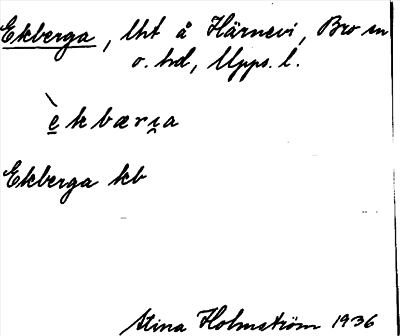 Ekberga, lht å Härnevi, Bro sn
o. hd, Upps. l.
è̱kbærı̨a
Ekberga kb
Stina Holmström 1936